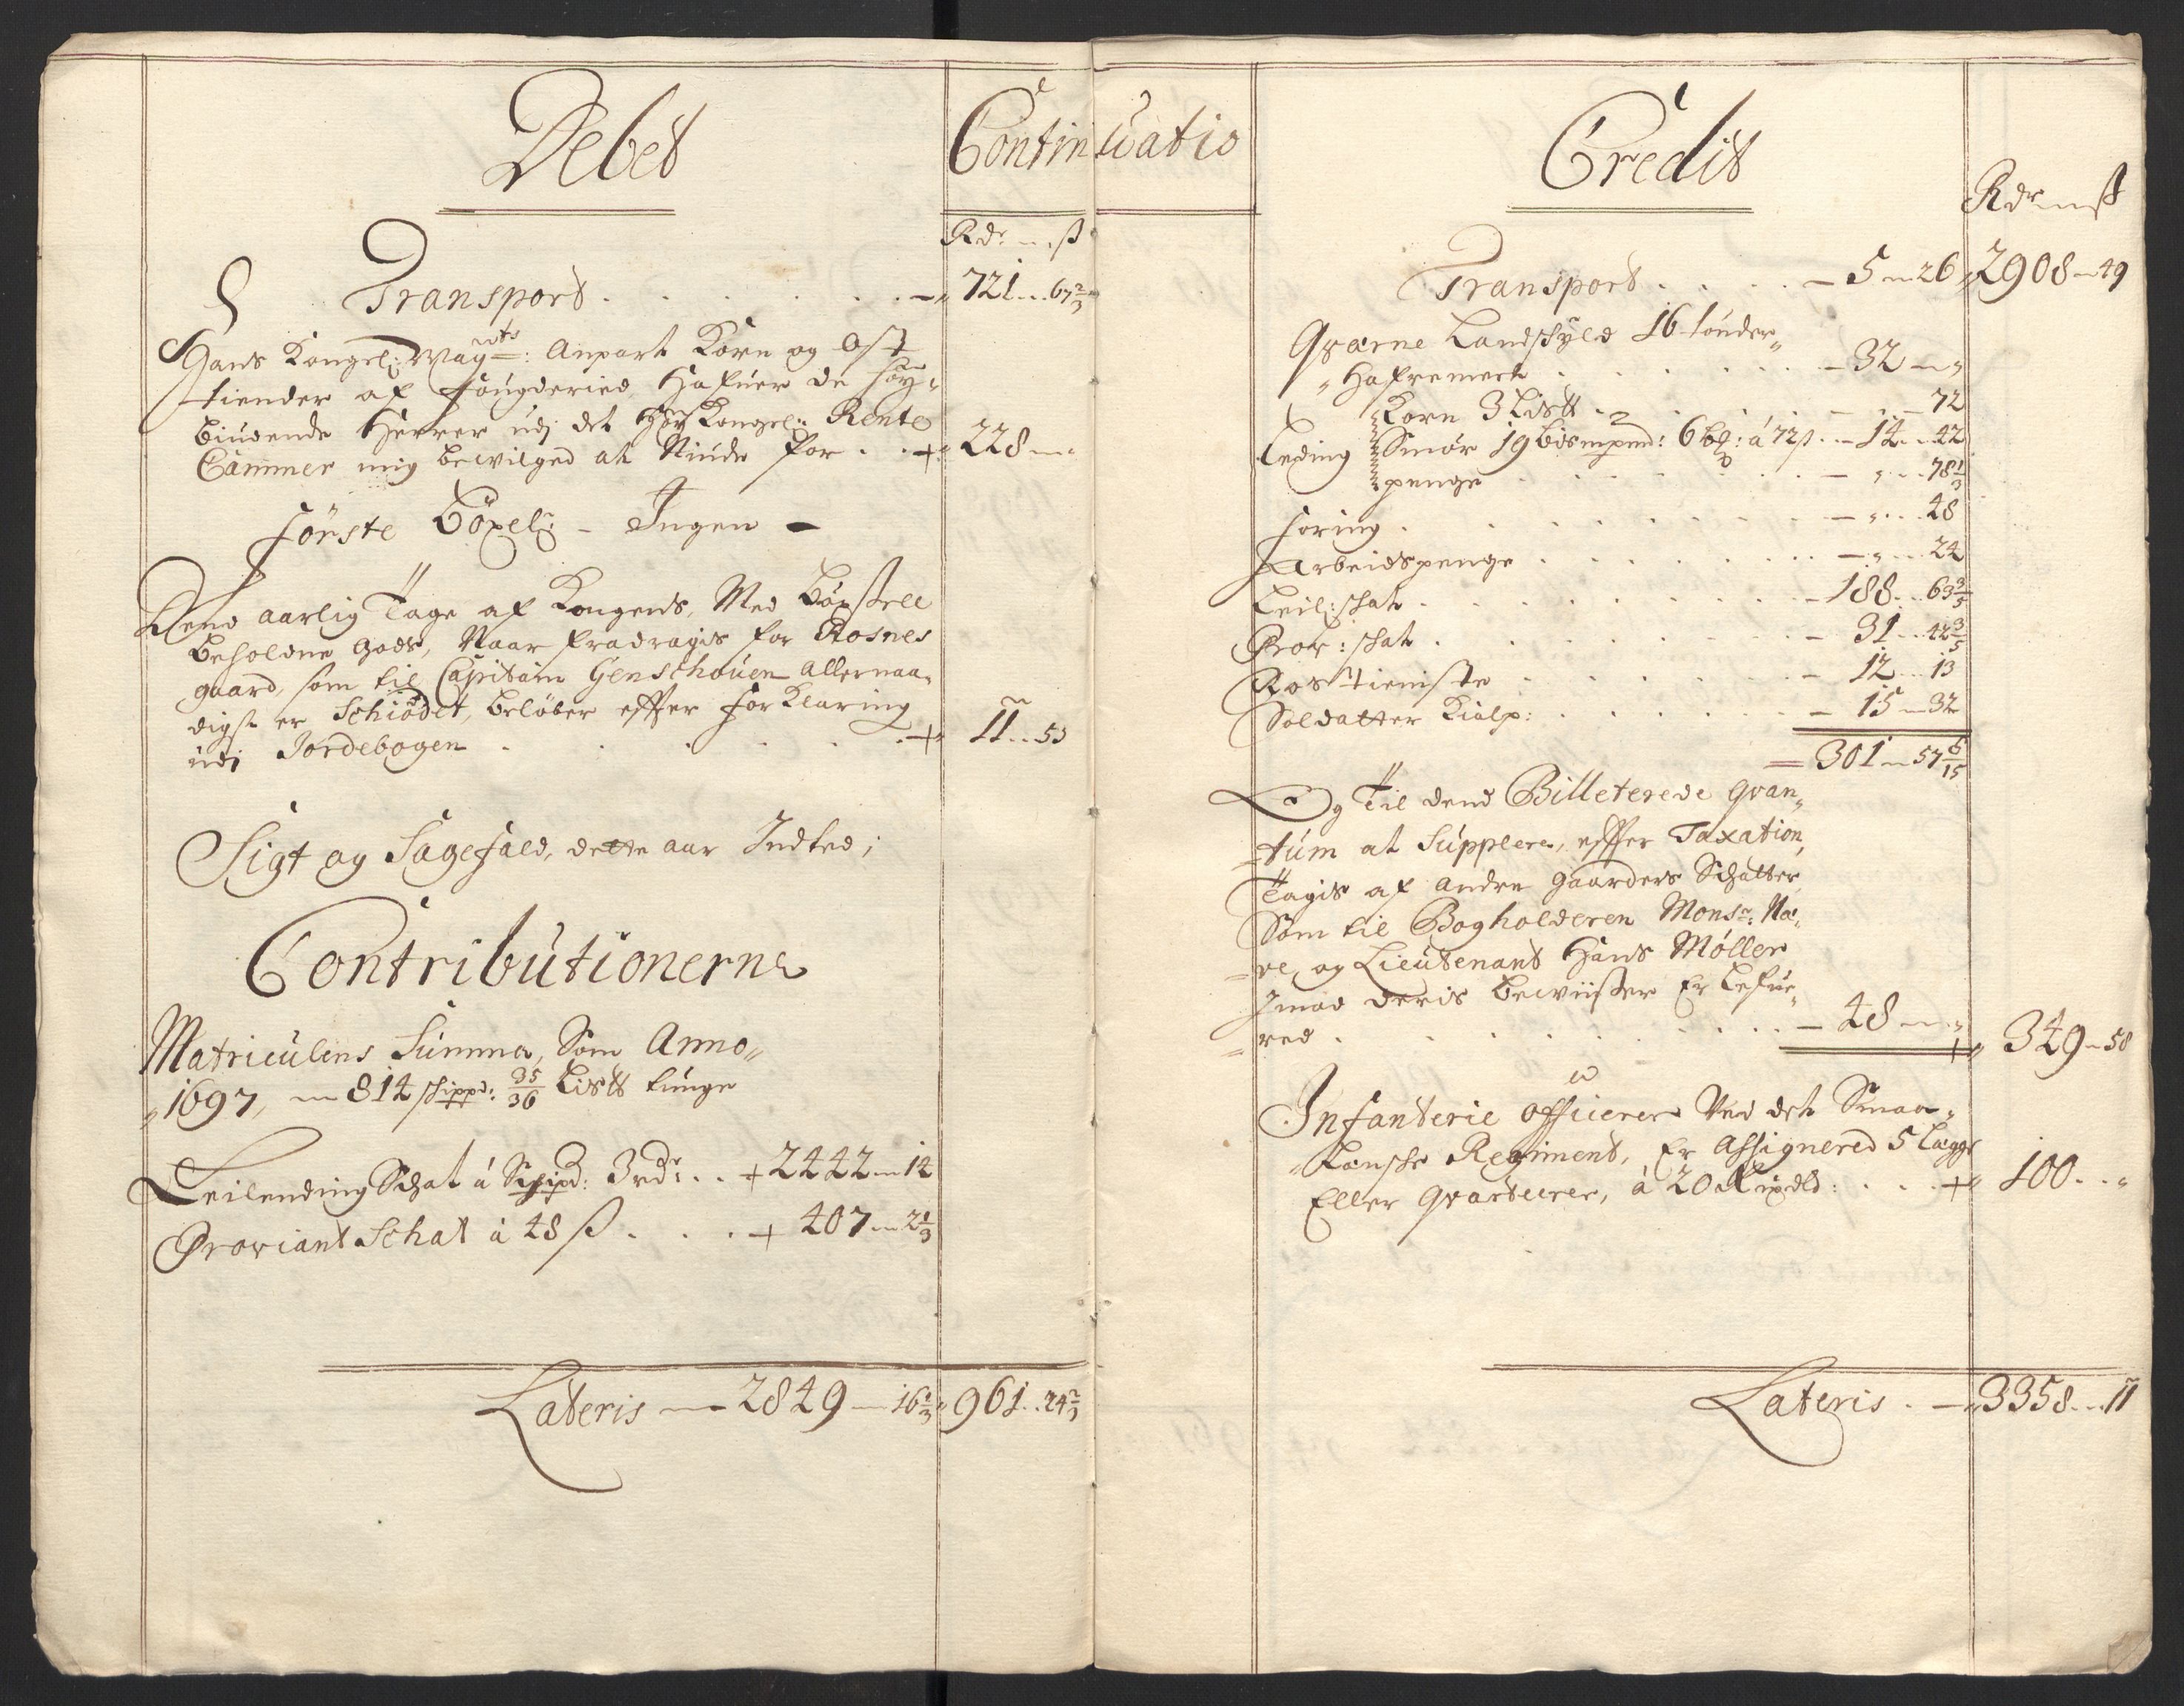 Debet
Continuatio
Rdr ß
Transport . . . . . . . — 721 .. 67 2/3
Hans Kongel: Mayts: Anpart Korn og Ost
tiender af fougderied, Hafuer de høy-
biudende Herrer udj det Høy Kongel: Rente
Cammer mig bewilged at Niude for . . + 228 —
Förste Böxel: – Ingen –
Dend aarlig Tage af Kongens, Med Böxsell
beholdne gods, Naar fradragis for Rosnes
gaard, som til Capitain Genschouen allernaa-
digst er Schiödet, beløber effter forklaring
udi Jordebogen . . . . . . + 11 .. 53
Sigt og Sagefald, dette aar Indted;
Contributionerne
Matriculens Summa, Som Anno
1697, — 814 schippd: 35/36 Listt tunge
Leilending Schat á Schipd: 3 rdr: . . + 2442 — 14
Proviant Schat á 48 ß . . . . + 407 — 2 1/3
Lateris — 2849 — 16 1/3 961 .. 24 2/3
Credit
Rdr ß
Transport . . . . — 5 — 26 2908 — 49
Qværne Landschyld 16 tönder
Hafremeel . . . . . . — 32 — „
Korn 3 Listt . . . . — . . 72
Leding Smör 19 bismpund: 6 bß: á 72 ß . . — 14 .. 42
penge . . . . . . . — „ . . 78 1/3
foring . . . . . . . — „ . . 48
Arbeidspenge . . . . . . . — „ . . 24
Leil: schat . . . . . . . — 188 .. 63 3/5
Prov: schat . . . . . . . — 31 .. 42 3/5
Rostieniste . . . . . . — 12 .. 13
Soldatter hielp: . . . . . . — 15 — 32
= 301 — 57 5/15
Og Til dend Billeterede qvan-
tum at Supplere, effter Taxation,
Tagis af andre gaarders Schatter,
Som til Bogholderen Monsr: Na-
ve, og Lieutenant Hans Møller
Imod deris bewiisser Er lefue-
red . . . . . . . . — 48 — „ + 349 — 58
Infanterie officerer Ved det Smaa-
lensche Regiment, Er Assignered 5 Lægge
Eller qvarteerer, á 20 Rixdlr: . . . + 100 . . „
Lateris . — 3358 .. 11